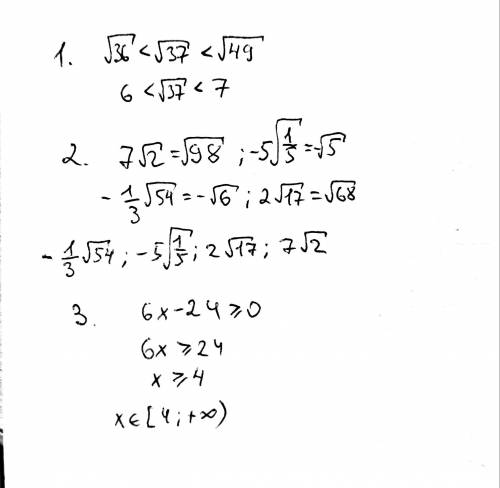 1. √36 < √37 < √49
6 < √37 < 7
2. 7√2 = √98 ; -5√(1/5) = -√5
- 1/3 √54 = -√6 ; 2√17 = √68
- 1/3 √54 ; -5√(1/5) ; 2√17 ; 7√2
3. 6x - 24 ⩾ 0
6x ⩾ 24
x ⩾ 4
x ∈ [4 ; +∞)